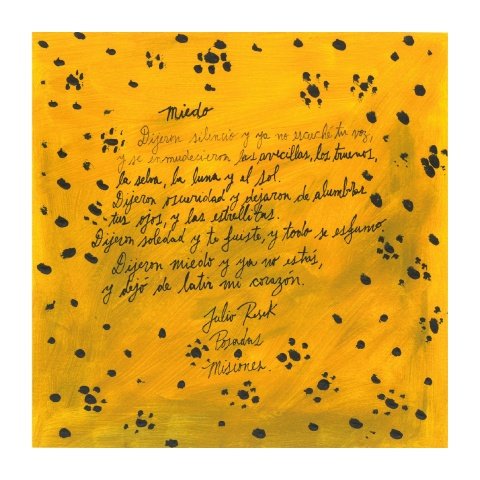 Miedo
Dijeron silencio y ya no escuché tu voz,
y se enmudecieron las avecillas, los truenos,
la selva, la luna y el sol.
Dijeron oscuridad y dejaron de alumbrar
tus ojos, y las estrellitas.
Dijeron soledad y te fuiste, y todo se esfumo.
Dijeron miedo y ya no estás,
y dejó de latir mi corazón.
Julio
Posadas
Misiones.